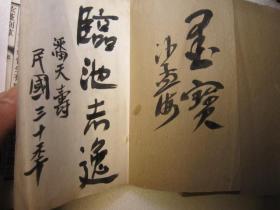 墨寶
沙孟海
臨池志逸
潘天壽
民國三十五年